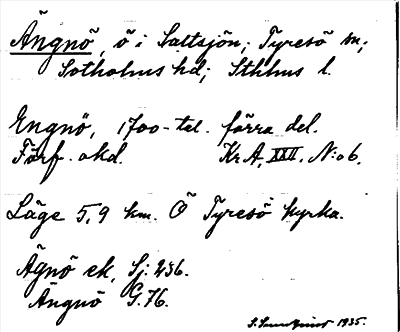 Ängnö, ö i Saltsjön; Tyresö sn;
Sotholms hd; Sthlms l.
Engnö, 1700-tal. förra del.
Förf. okd. Kr A, XXII, N:o 6.
Läge 5,9 km. Ö Tyresö kyrka.
Ägnö ek, Sj. 236.
Ängnö G. 76.
1935.